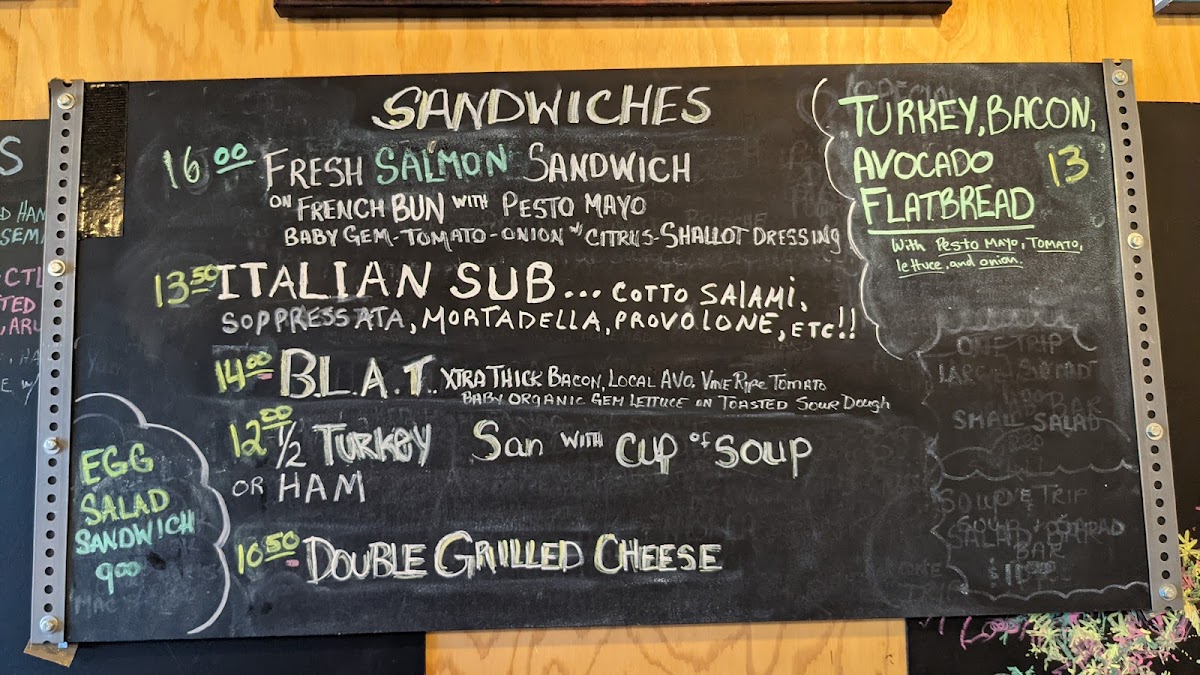 SANDWICHES
16 00 FRESH SALMON SANDWICH
ON FRENCH BUN WITH PESTO MAYO
BABY GEM-TOMATO-ONION W/ CITRUS-SHALLOT DRESSING
13 50 ITALIAN SUB... COTTO SALAMI,
SOPPRESSATA, MORTADELLA, PROVOLONE, ETC!!
14 00 B.L.A.T. XTRA THICK BACON, LOCAL AVO. VINE RIPE TOMATO
BABY ORGANIC GEM LETTUCE ON TOASTED SOUR DOUGH
12 00 1/2 TURKEY SAN WITH CUP OF SOUP
OR HAM
10 50 DOUBLE GRILLED CHEESE
EGG
SALAD
SANDWICH
9 00
TURKEY, BACON,
AVOCADO 13
FLATBREAD
With PESTO MAYO, TOMATO,
lettuce, and onion.
ONE TRIP
SMALL SALAD
SALAD
BAR